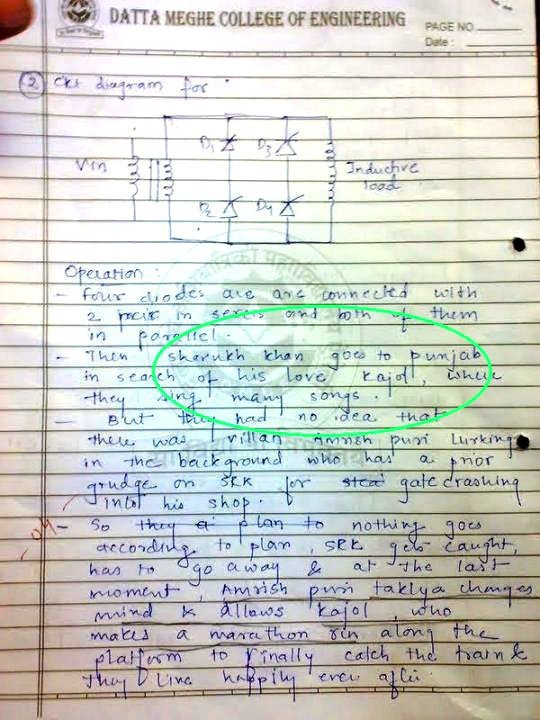 DATTA MEGHE COLLEGE OF ENGINEERING
PAGE NO.
Date :
2 ckt diagram for
D1 D3
Vin
Inductive
load
D2 D4
Operation :
- four diodes are are connected with
2 pair in series and both of them
in parallel.
- Then sharukh khan goes to punjab
in search of his love, kajol, where
they sing many songs.
- But they had no idea that
there was villan Amrish puri lurking
in the background who has a prior
grudge on SRK for gatecrashing
into his shop.
- So they plan to nothing goes
according to plan, SRK gets caught,
has to go away & at the last
moment, Amrish puri takiya changes
mind & allows kajol, who
makes a marathon run along the
platform to finally catch the train &
They live happily ever after.